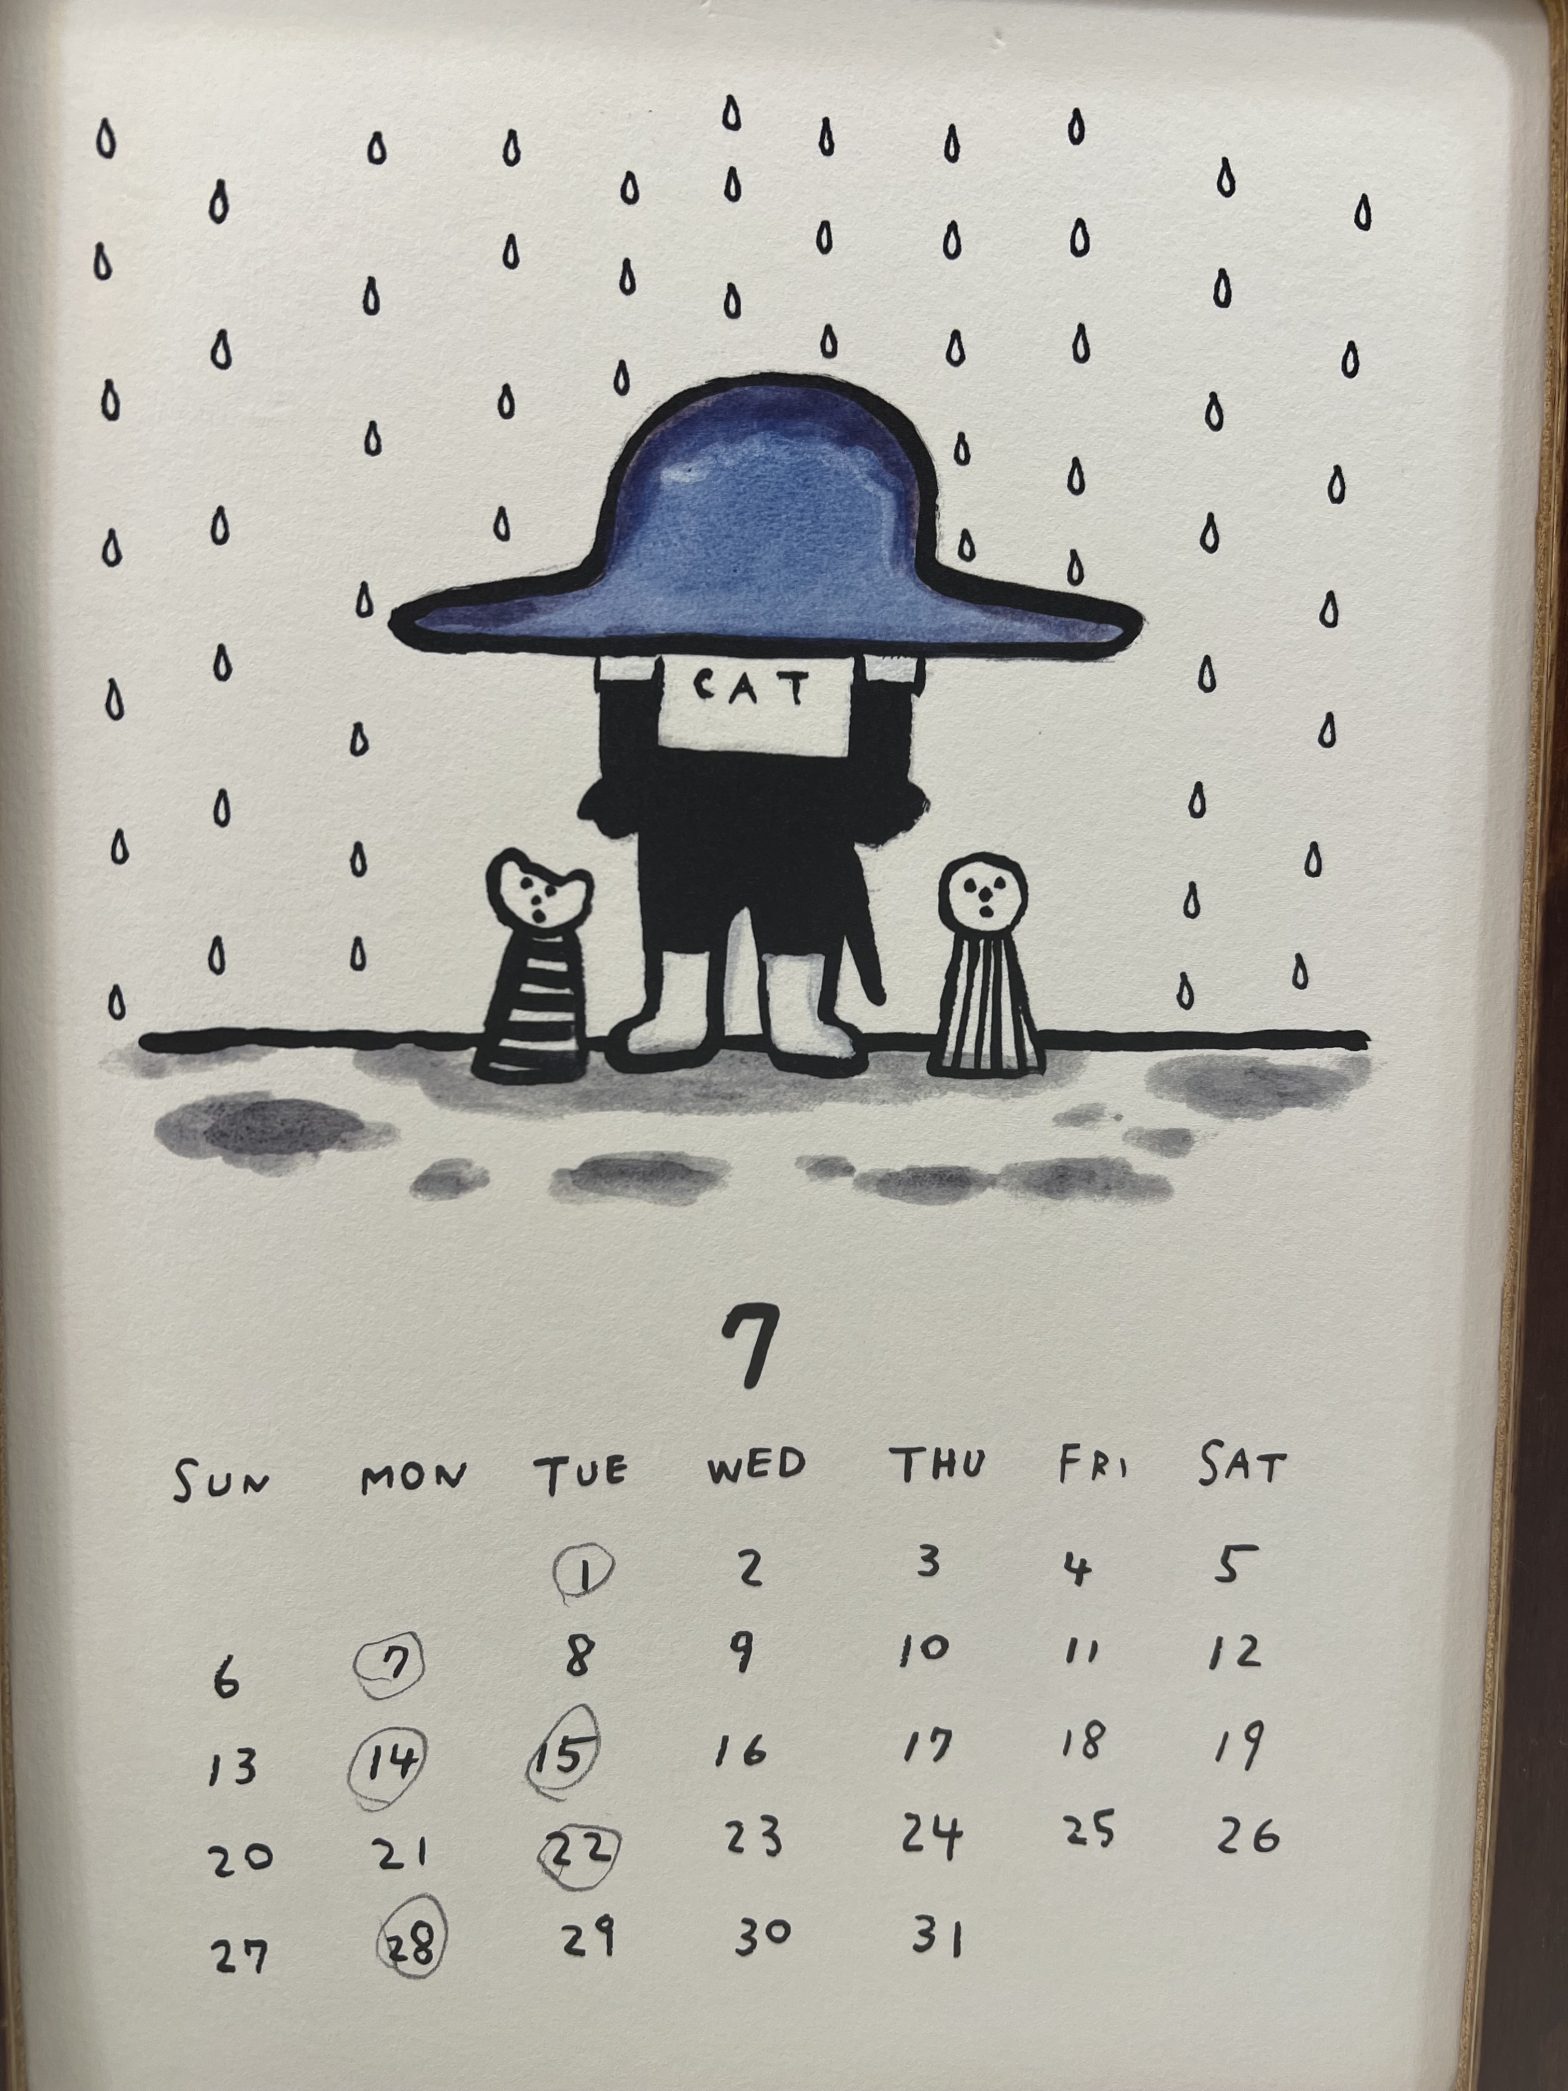 CAT
7
SUN MON TUE WED THU FRI SAT
1 2 3 4 5
6 7 8 9 10 11 12
13 14 15 16 17 18 19
20 21 22 23 24 25 26
27 28 29 30 31